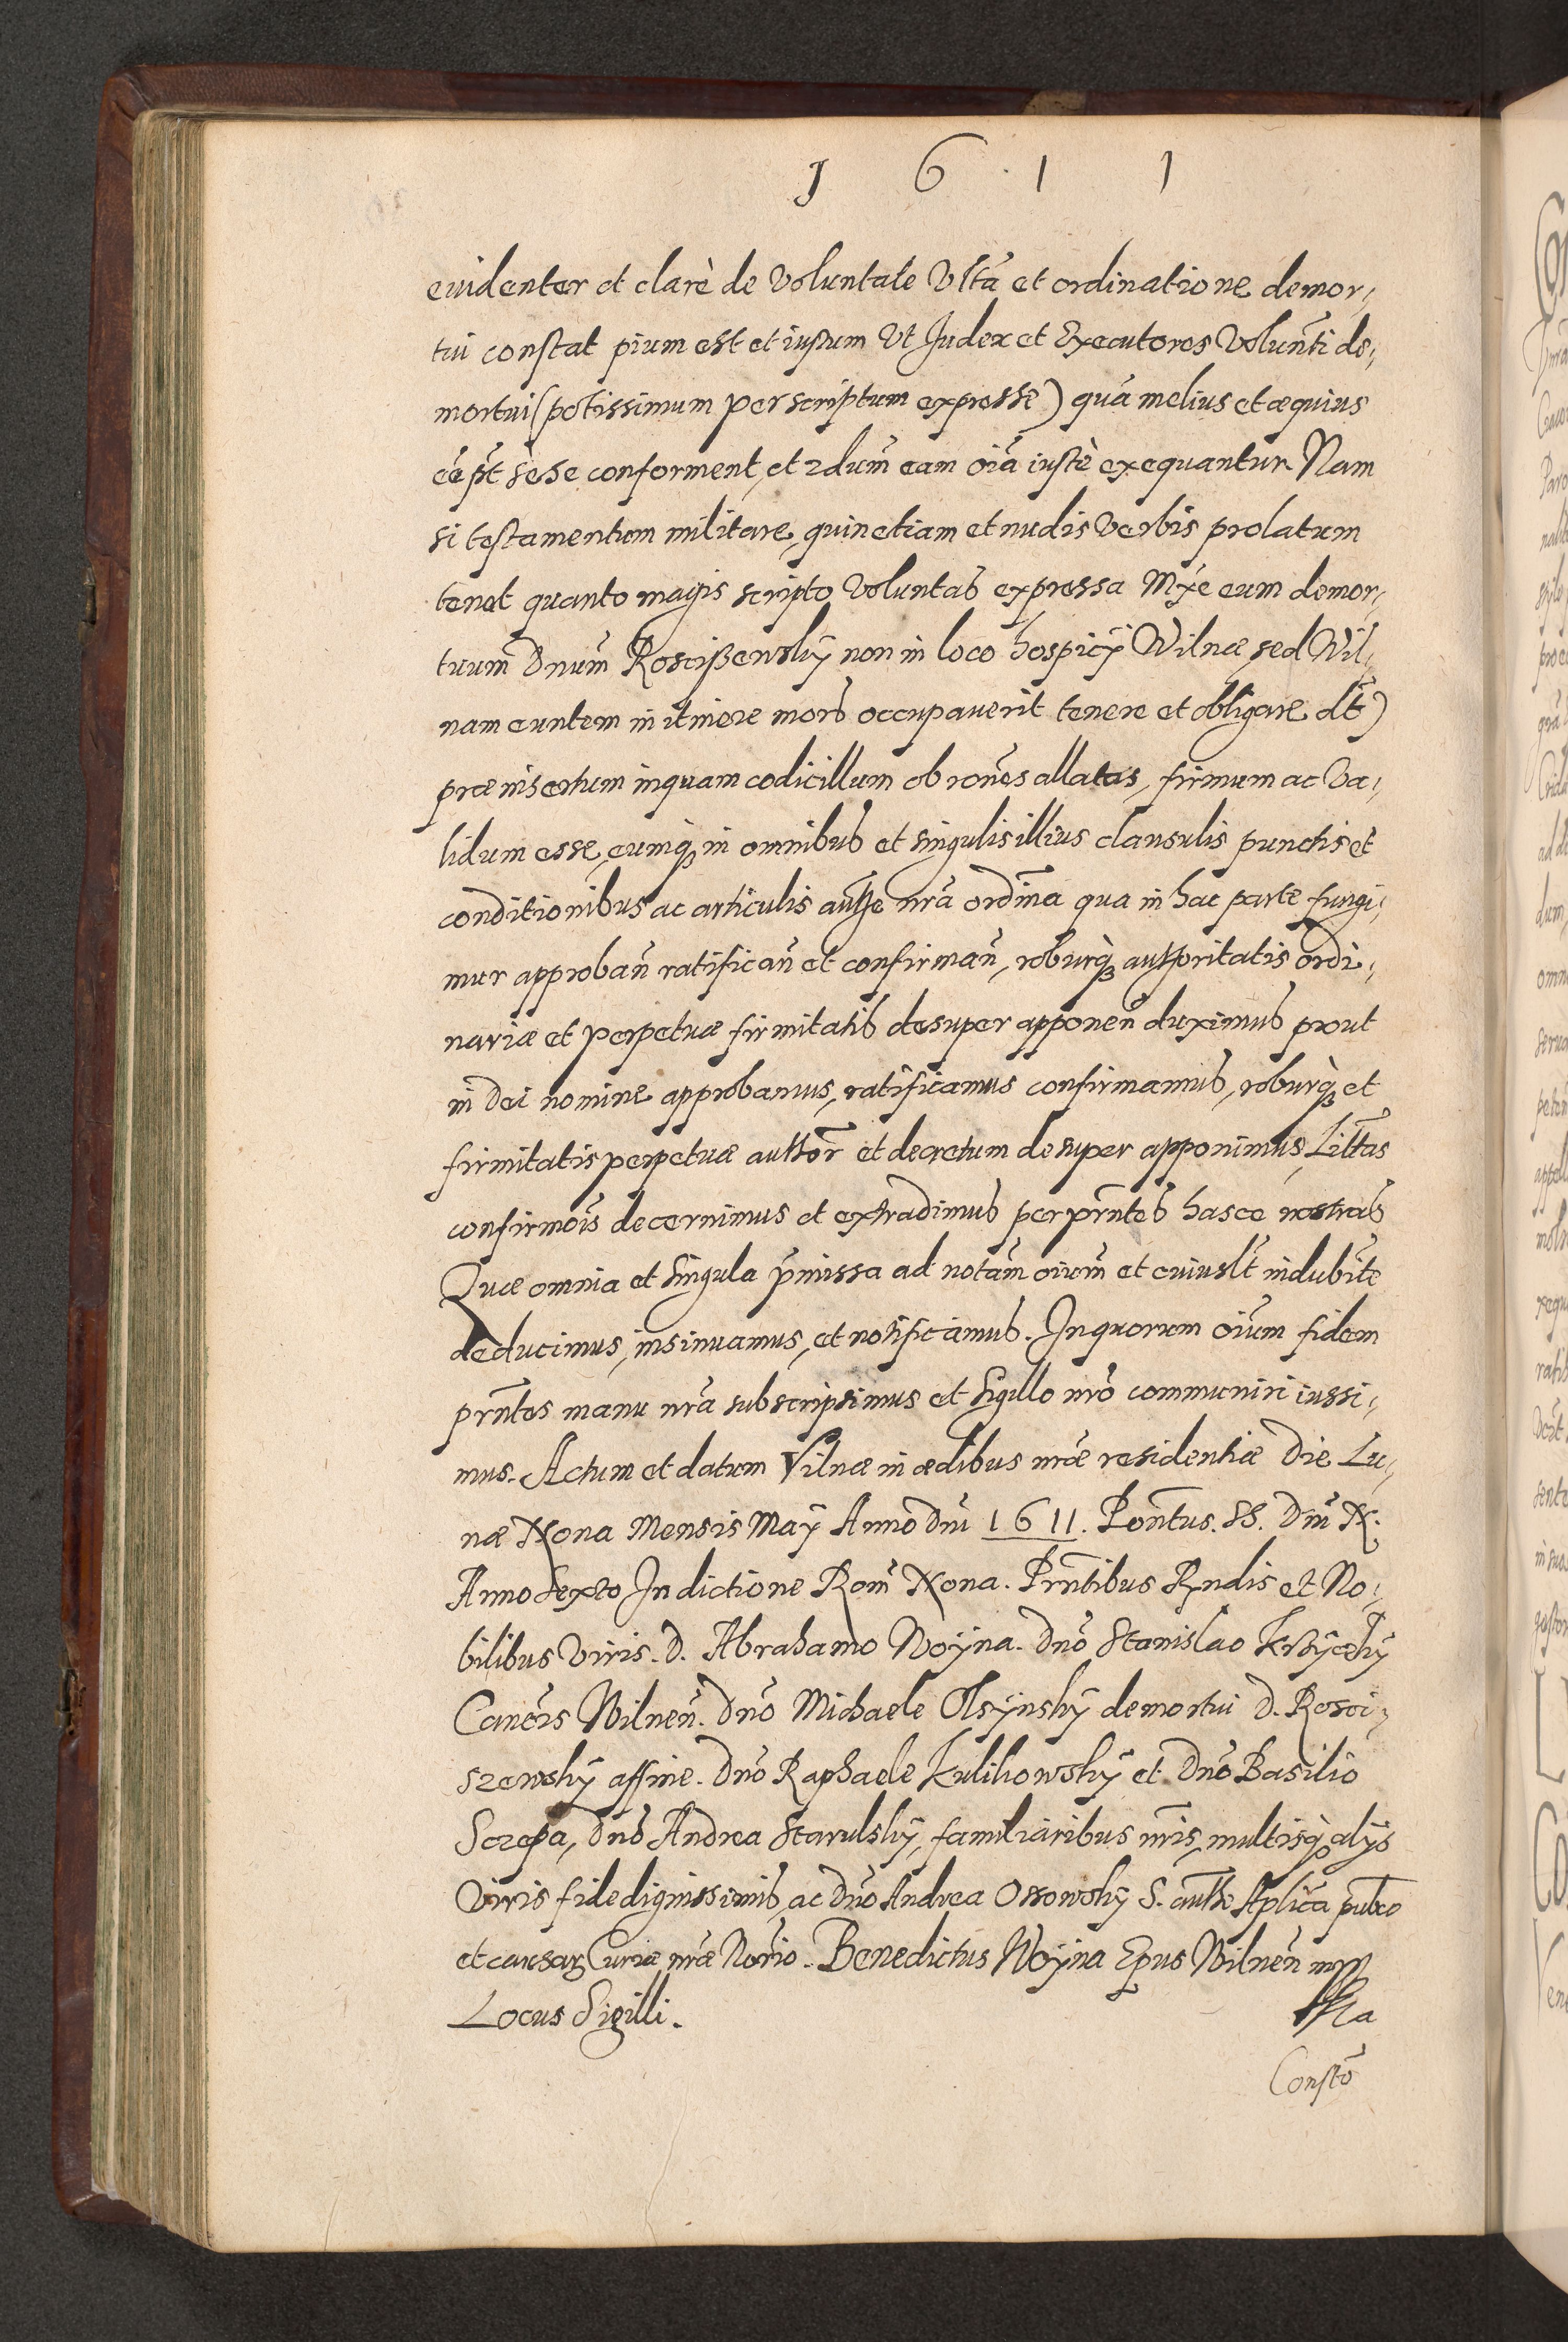 1 6 1 1
euidenter et clarè de Voluntate Vltã et ordinatione demor,
tui constat pium est et iustum Vt Judex et Executores Volunti de,
mortui (potissimum per scriptum expressè) quã melius et æquius
sese conforment, et 2dum eam oĩa iustè exequantur. Nam
si testamentum militare, quin etiam et nudis Verbis prolatum
tenet quanto magis scripto Voluntas expressa eum demor,
tuum Dnum Rosciszewsky non in loco hospicÿ Wilnæ, sed Wil,
nam euntem in itinere mors occupauerit tenere et obligare dt)
præinsertum inquam codicillum ob rones allatas, firmum ac Va,
lidum esse, eumq₃ in omnibus et singulis illius clausulis punctis et
conditionibus ac articulis authe nrã ordina qua in hac parte fungi,
mur approbañ ratificañ et confirmañ, roburq₃ authoritatis ordi,
nariæ et perpetuæ firmitatis desuper apponeñ duximus prout
in Dei nomine approbamus, ratificamus confirmamus, roburq₃ et
firmitatis perpetuæ author et decretum desuper apponimus, Littas
confirmõis decernimus et extradimus per prntes hasce nostras
Quæ omnia et singula pmissa ad notam oium et cuiuslt indubite
deducimus, insinuamus, et notificamus. In quorum oium fidem
prntes manu nrã subscripsimus et sigillo nrõ communiri iussi,
mus. Actum et datum Vilnæ in ædibus nræ residentiæ Die Lu,
næ Nona Mensis Maÿ Anno Dni 1611. Pontus. SS. Dni N.
Anno Sexto Indictione Rom Nona. Prntibus Rndis et No,
bilibus Viris. D. Abrahamo Woÿna. Dno Stanislao Krzÿcky
Canõis Wilneñ. Dno Michaele Olsÿnsky demortui D. Rosci,
szewsky affine. Dno Raphaele Kulikowsky et Dno Basilio
Sczepa, Dno Andrea Starulsky, familiaribus nris, multisq₃ alÿs
Viris fidedignissimis, ac Dno Andrea Ossowsky S. authe Aplica publco
et causar Curiæ nræ Norio. Benedictus Woÿna Epus Wilneñ mpp
Locus Sigilli.
Consto